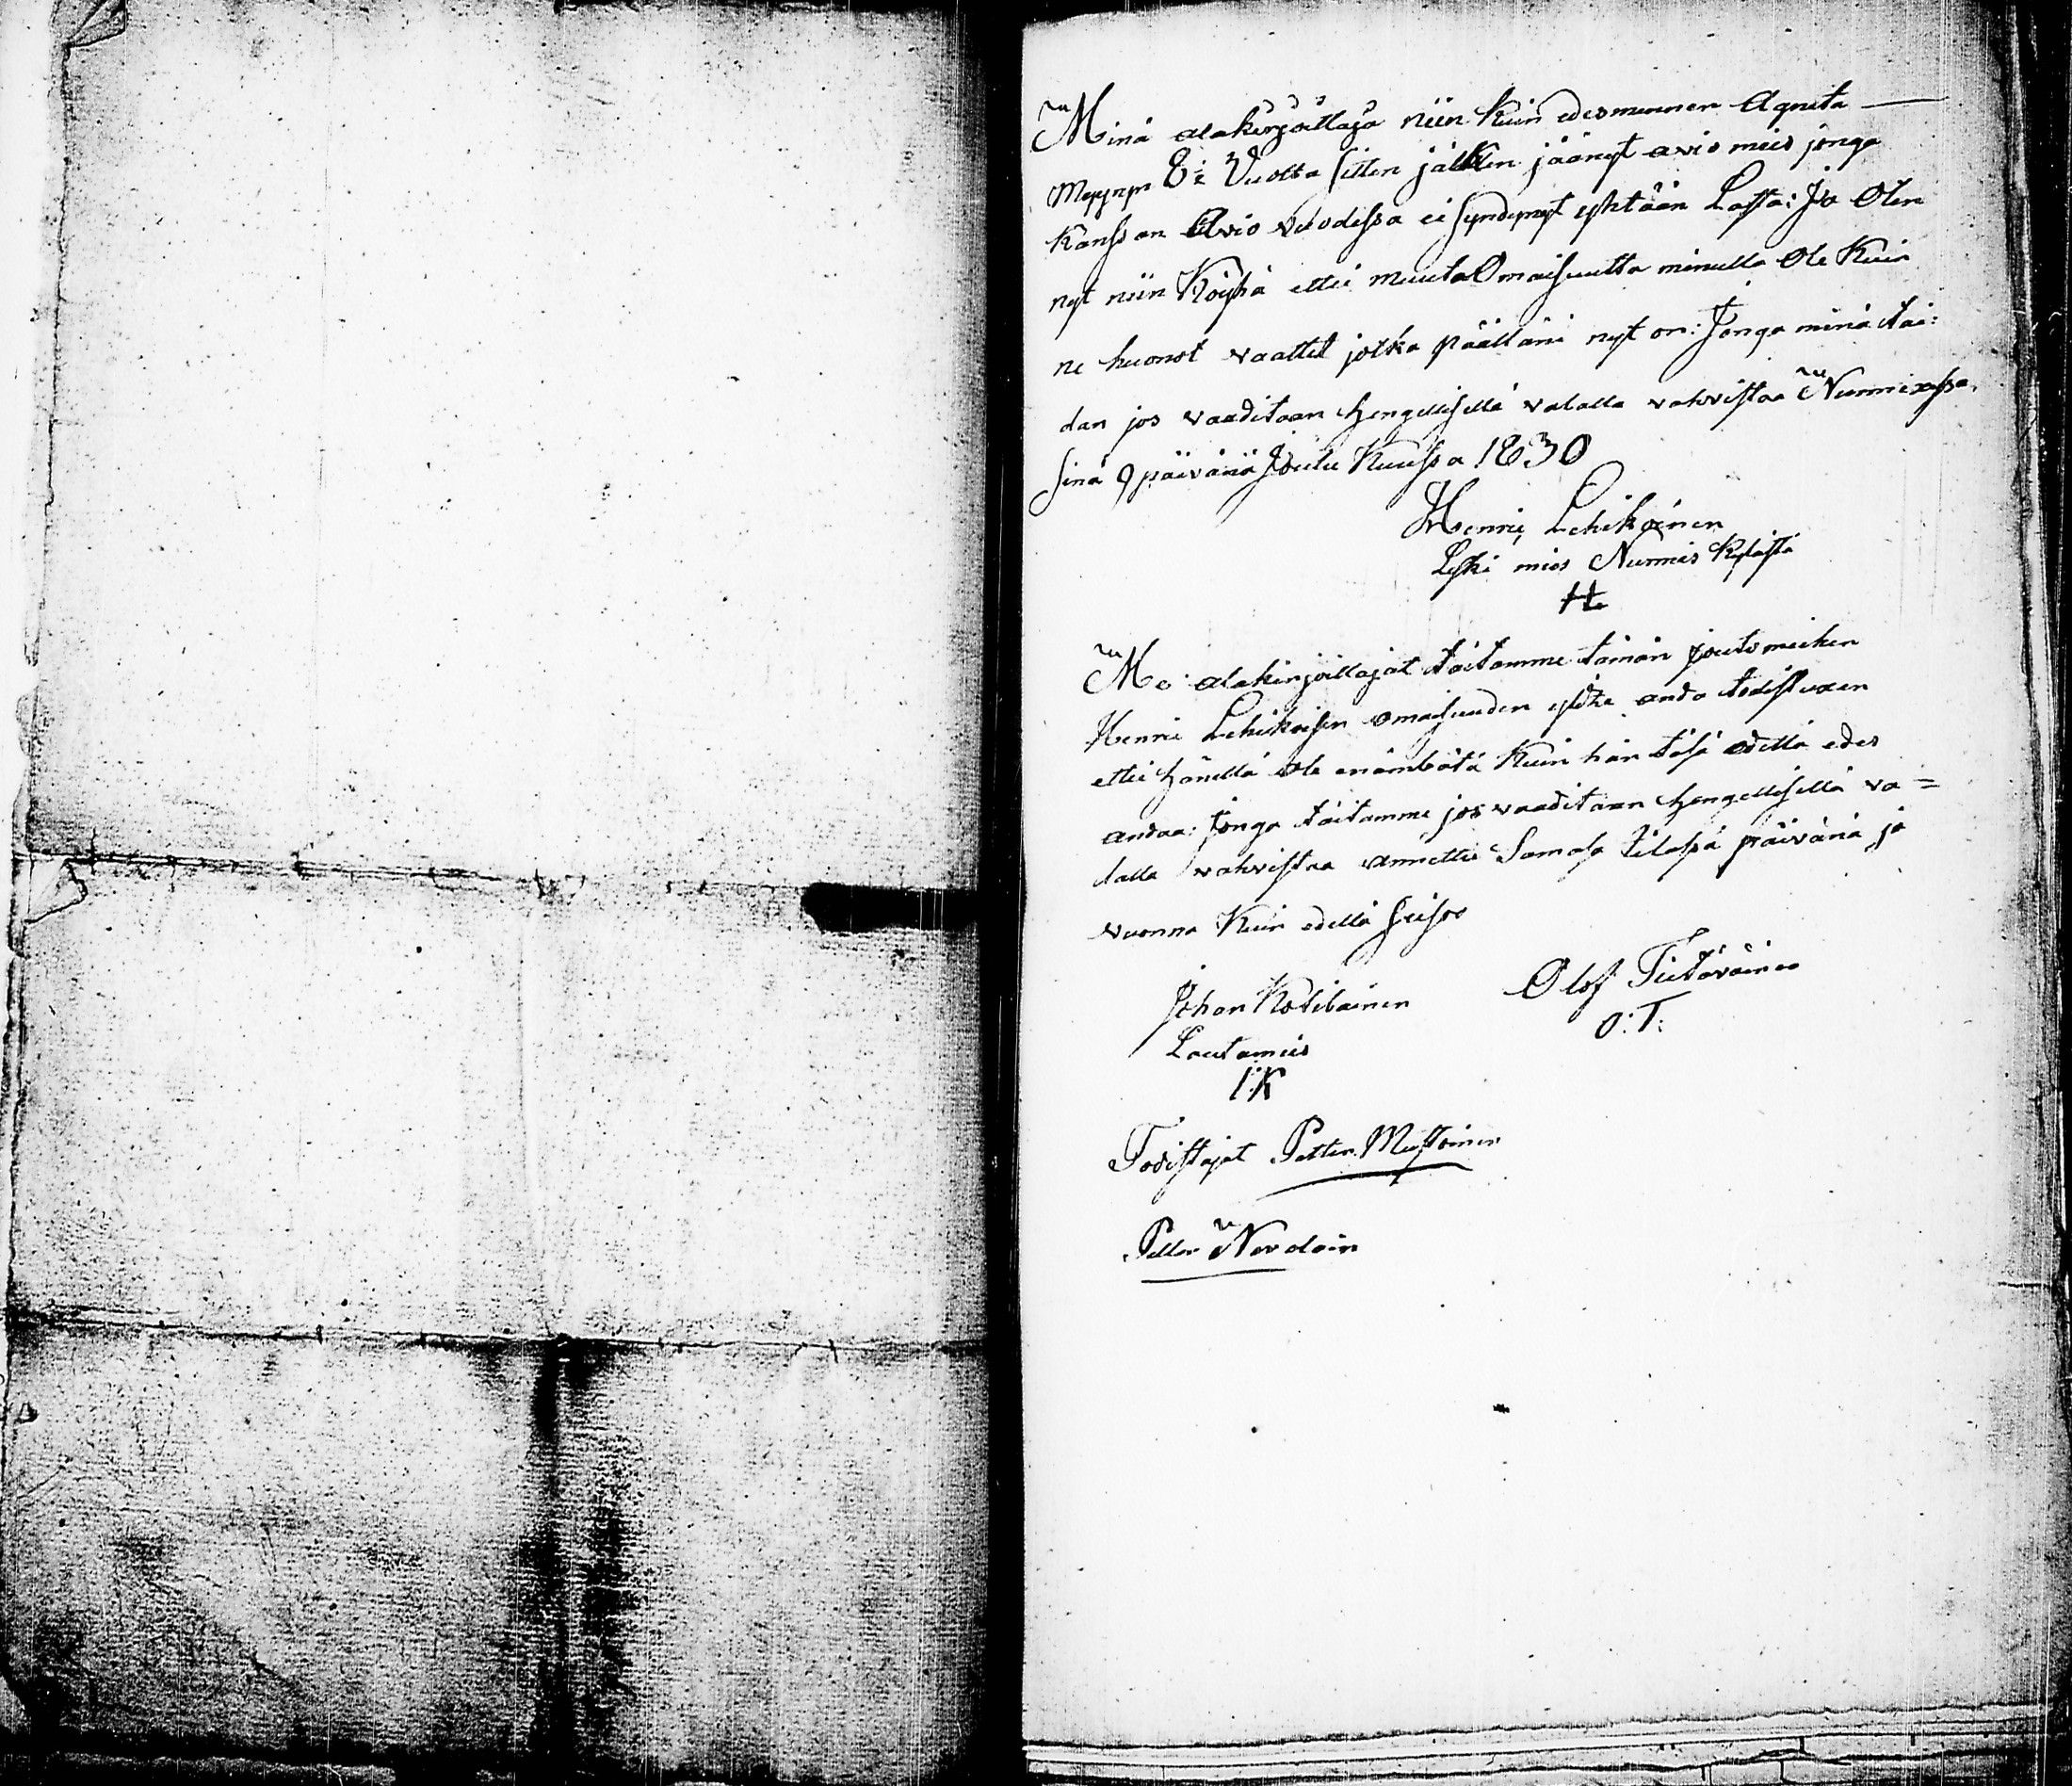 Minä alakirjoittaja niin kuin edesmennen Agneta
8:a Vuotta sitten jälkken jäänyt avio mies jonga
Kanssan Avio vuodessa ei syndynyt yhtään Lasta: Ja Olen
nyt niin Köyhä ettei muuta Omaisuutta minulla Ole Kuin
ne huonot vaattet jotka päälläni nyt on: Jonga minä tai:
dan jos vaaditaan hengellisellä valalla vahvistaa Nurmexessa
sinä 9 päivänä Joulu Kuussa 1830
Henric Lehikoinen
Leski mies Nurmes Kylästä
H L
Me alakirjoittajat taitamme tämän joutomiehen
Henric Lehikoisen omaisuuden ylitze anda todistuxen
ettei hänellä ole enämbätä Kuin hän täsä edellä edes
andaa: Jonga taitamme jos vaaditaan hengellisellä va=
lalla vahvistaa annettu Samasa tilassa päivänä ja
vuonna Kuin edellä seisoo
Johan Kotilainen Olof Tietäväinen
Lautamies O:T:
I:K
Todistajat Petter Mustoinen
Petter Nevalain